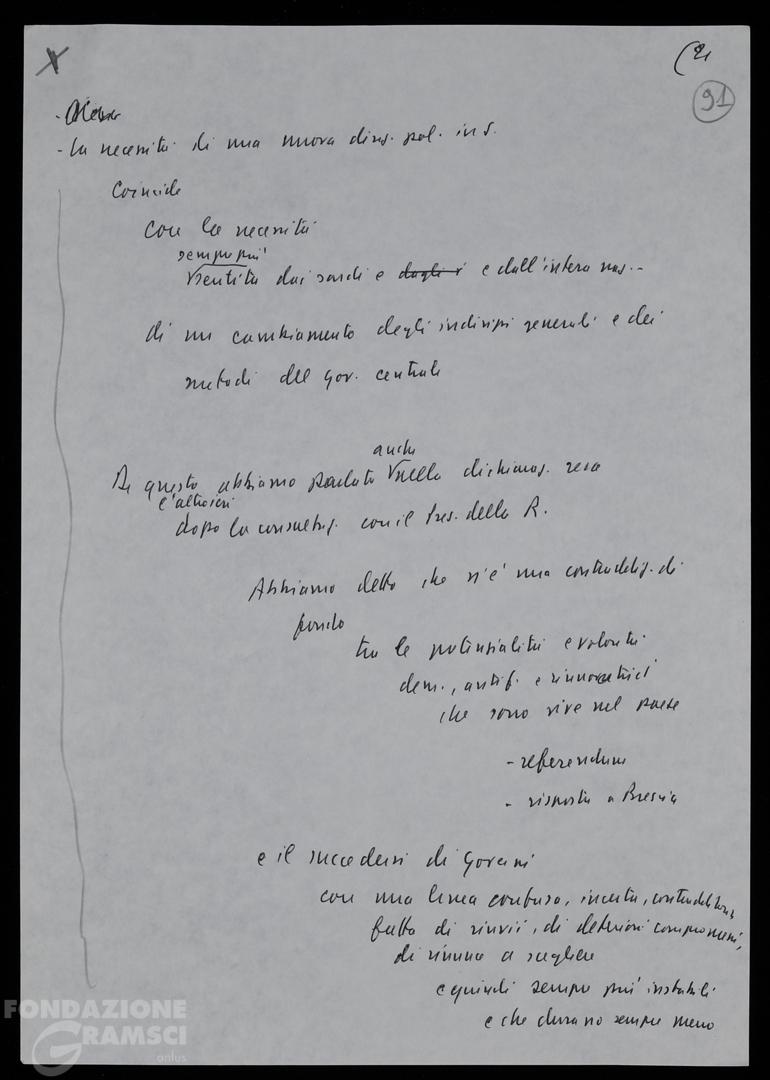 (2
91
- la necessità di una nuova direz. pol. in S.
Coincide
con la necessità
sempre più
sentita dai sardi e dagli i e dall'intera naz. -
di un cambiamento degli indirizzi generali e dei
metodi del gov. centrale
anche
Di questo abbiamo parlato nella dichiaraz. resa
l'altroieri
dopo la consultaz. con il Pres. della R.
Abbiamo detto che v'è una contraddiz. di
fondo
tra le potenzialità e volontà
dem., antif. e rinnovatrici
che sono vive nel paese
- referendum
- risposta a Brescia
e il succedersi di Governi
con una linea confusa, incerta, contraddittoria,
fatta di rinvii, di deteriori compromessi,
di rinunce a scegliere
e quindi sempre più instabili
e che durano sempre meno
FONDAZIONE
GRAMSCI
onlus